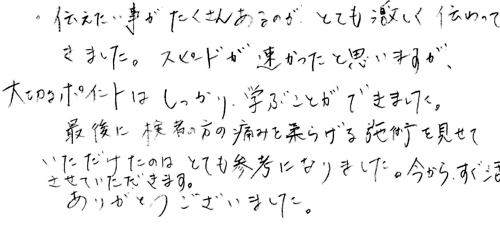 ・伝えたい事がたくさんあるのが、とても激しく伝わって
きました。スピードが速かったと思いますが、
大切なポイントはしっかり学ぶことができました。
最後に検者の方の痛みを柔らげる施術を見せて
いただけたのはとても参考になりました。今から、すぐ活
させていただきます。
ありがとうございました。